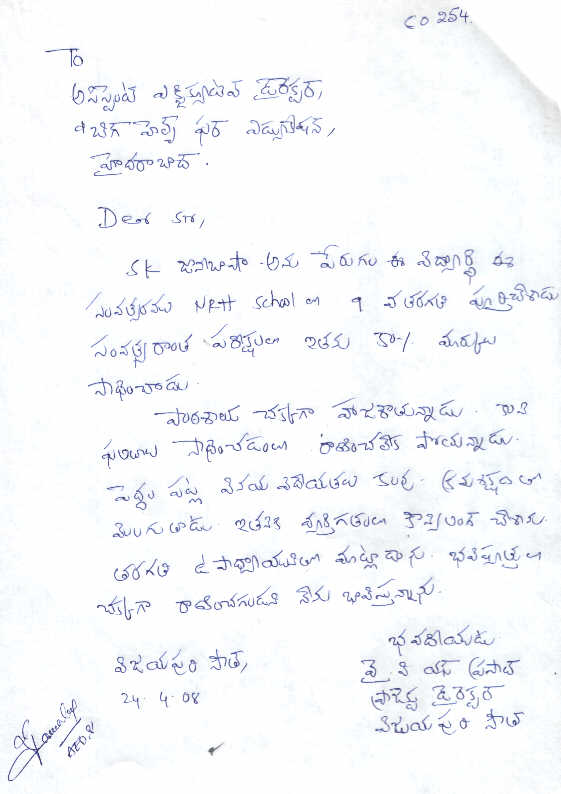 CO 254
To
అసిస్టెంట్ ఎక్జిక్యూటివ్ డైరెక్టర్,
బిగ్ హెల్ప్ ఫర్ ఎడ్యుకేషన్,
హైదరాబాద్.
Dear Sir,
SK జానిబాషా అను పేరుగల ఈ విద్యార్థి ఈ
సంవత్సరము NRH School లో 9 వ తరగతి పూర్తిచేశాడు
సంవత్సరాంత పరీక్షలలో ఇతను మార్కులు
సాధించాడు.
పాఠశాలకు చక్కగా హాజరౌతున్నాడు. కాని
ఫలితాలు సాధించడంలో రాణించలేక పోయున్నాడు.
పెద్దల పట్ల వినయ విధేయతలు కలవు. క్రమశిక్షణతో
మెలుగుతాడు. ఇతనికి వ్యక్తిగతంగా కౌన్సిలింగ్ చేశాను.
తరగతి ఉపాధ్యాయునితో మాట్లాడాను. భవిష్యత్తులో
చక్కగా రాణించగలడని నేను భావిస్తున్నాను.
భవదీయుడు
విజయపురి సౌత్, వై. వి యస్ ప్రసాద్
24.4.08 ప్రాజెక్టు డైరెక్టర్
విజయపురి సౌత్
AED.P